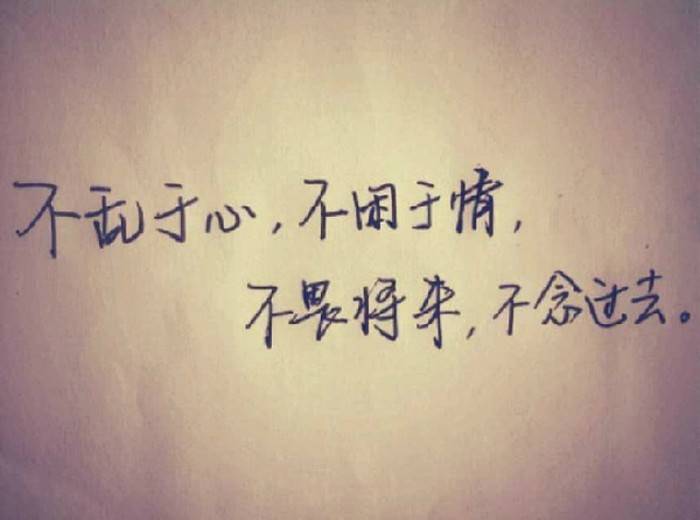 不乱于心,不困于情,
不畏将来,不念过去。